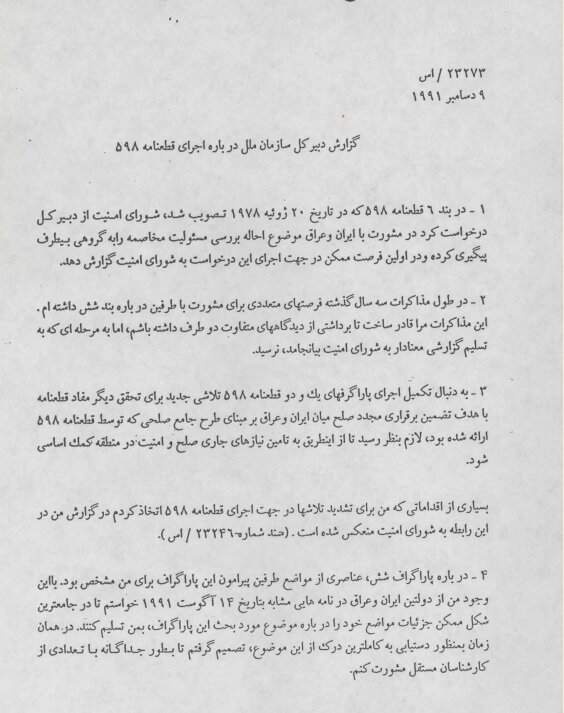 ۲۳۲۷۳ / اس
۹ دسامبر ۱۹۹۱
گزارش دبیر کل سازمان ملل در باره اجرای قطعنامه ۵۹۸
۱ ـ در بند ۶ قطعنامه ۵۹۸ که در تاریخ ۲۰ ژوئیه ۱۹۷۸ تصویب شد، شورای امنیت از دبیر کل
درخواست کرد در مشورت با ایران وعراق موضوع احاله بررسی مسئولیت مخاصمه رابه گروهی بیطرف
پیگیری کرده ودر اولین فرصت ممکن در جهت اجرای این درخواست به شورای امنیت گزارش دهد.
۲ ـ در طول مذاکرات سه سال گذشته فرصتهای متعددی برای مشورت با طرفین در باره بند شش داشته ام .
این مذاکرات مرا قادر ساخت تا برداشتی از دیدگاههای متفاوت دو طرف داشته باشم، اما به مرحله ای که به
تسلیم گزارشی معنادار به شورای امنیت بیانجامد، نرسید.
۳ ـ به دنبال تکمیل اجرای پاراگرفهای یك و دو قطعنامه ۵۹۸ تلاشی جدید برای تحقق دیگر مفاد قطعنامه
با هدف تضمین برقراری مجدد صلح میان ایران وعراق بر مبنای طرح جامع صلحی که توسط قطعنامه ۵۹۸
ارائه شده بود، لازم بنظر رسید تا از اینطریق به تامین نیازهای جاری صلح و امنیت در منطقه کمك اساسی
شود.
بسیاری از اقداماتی که من برای تشدید تلاشها در جهت اجرای قطعنامه ۵۹۸ اتخاذ کردم در گزارش من در
این رابطه به شورای امنیت منعکس شده است . (سند شماره-۲۳۲۴۶ / اس ).
۴ ـ در باره پاراگراف شش، عناصری از مواضع طرفین پیرامون این پاراگراف برای من مشخص بود. بااین
وجود من از دولتین ایران وعراق در نامه هایی مشابه بتاریخ ۱۴ آگوست ۱۹۹۱ خواستم تا در جامعترین
شکل ممکن جزئیات مواضع خود را در باره موضوع مورد بحث این پاراگراف، بمن تسلیم کنند. در همان
زمان بمنظور دستیابی به کاملترین درک از این موضوع، تصمیم گرفتم تا بطور جداگانه با تعدادی از
کارشناسان مستقل مشورت کنم.